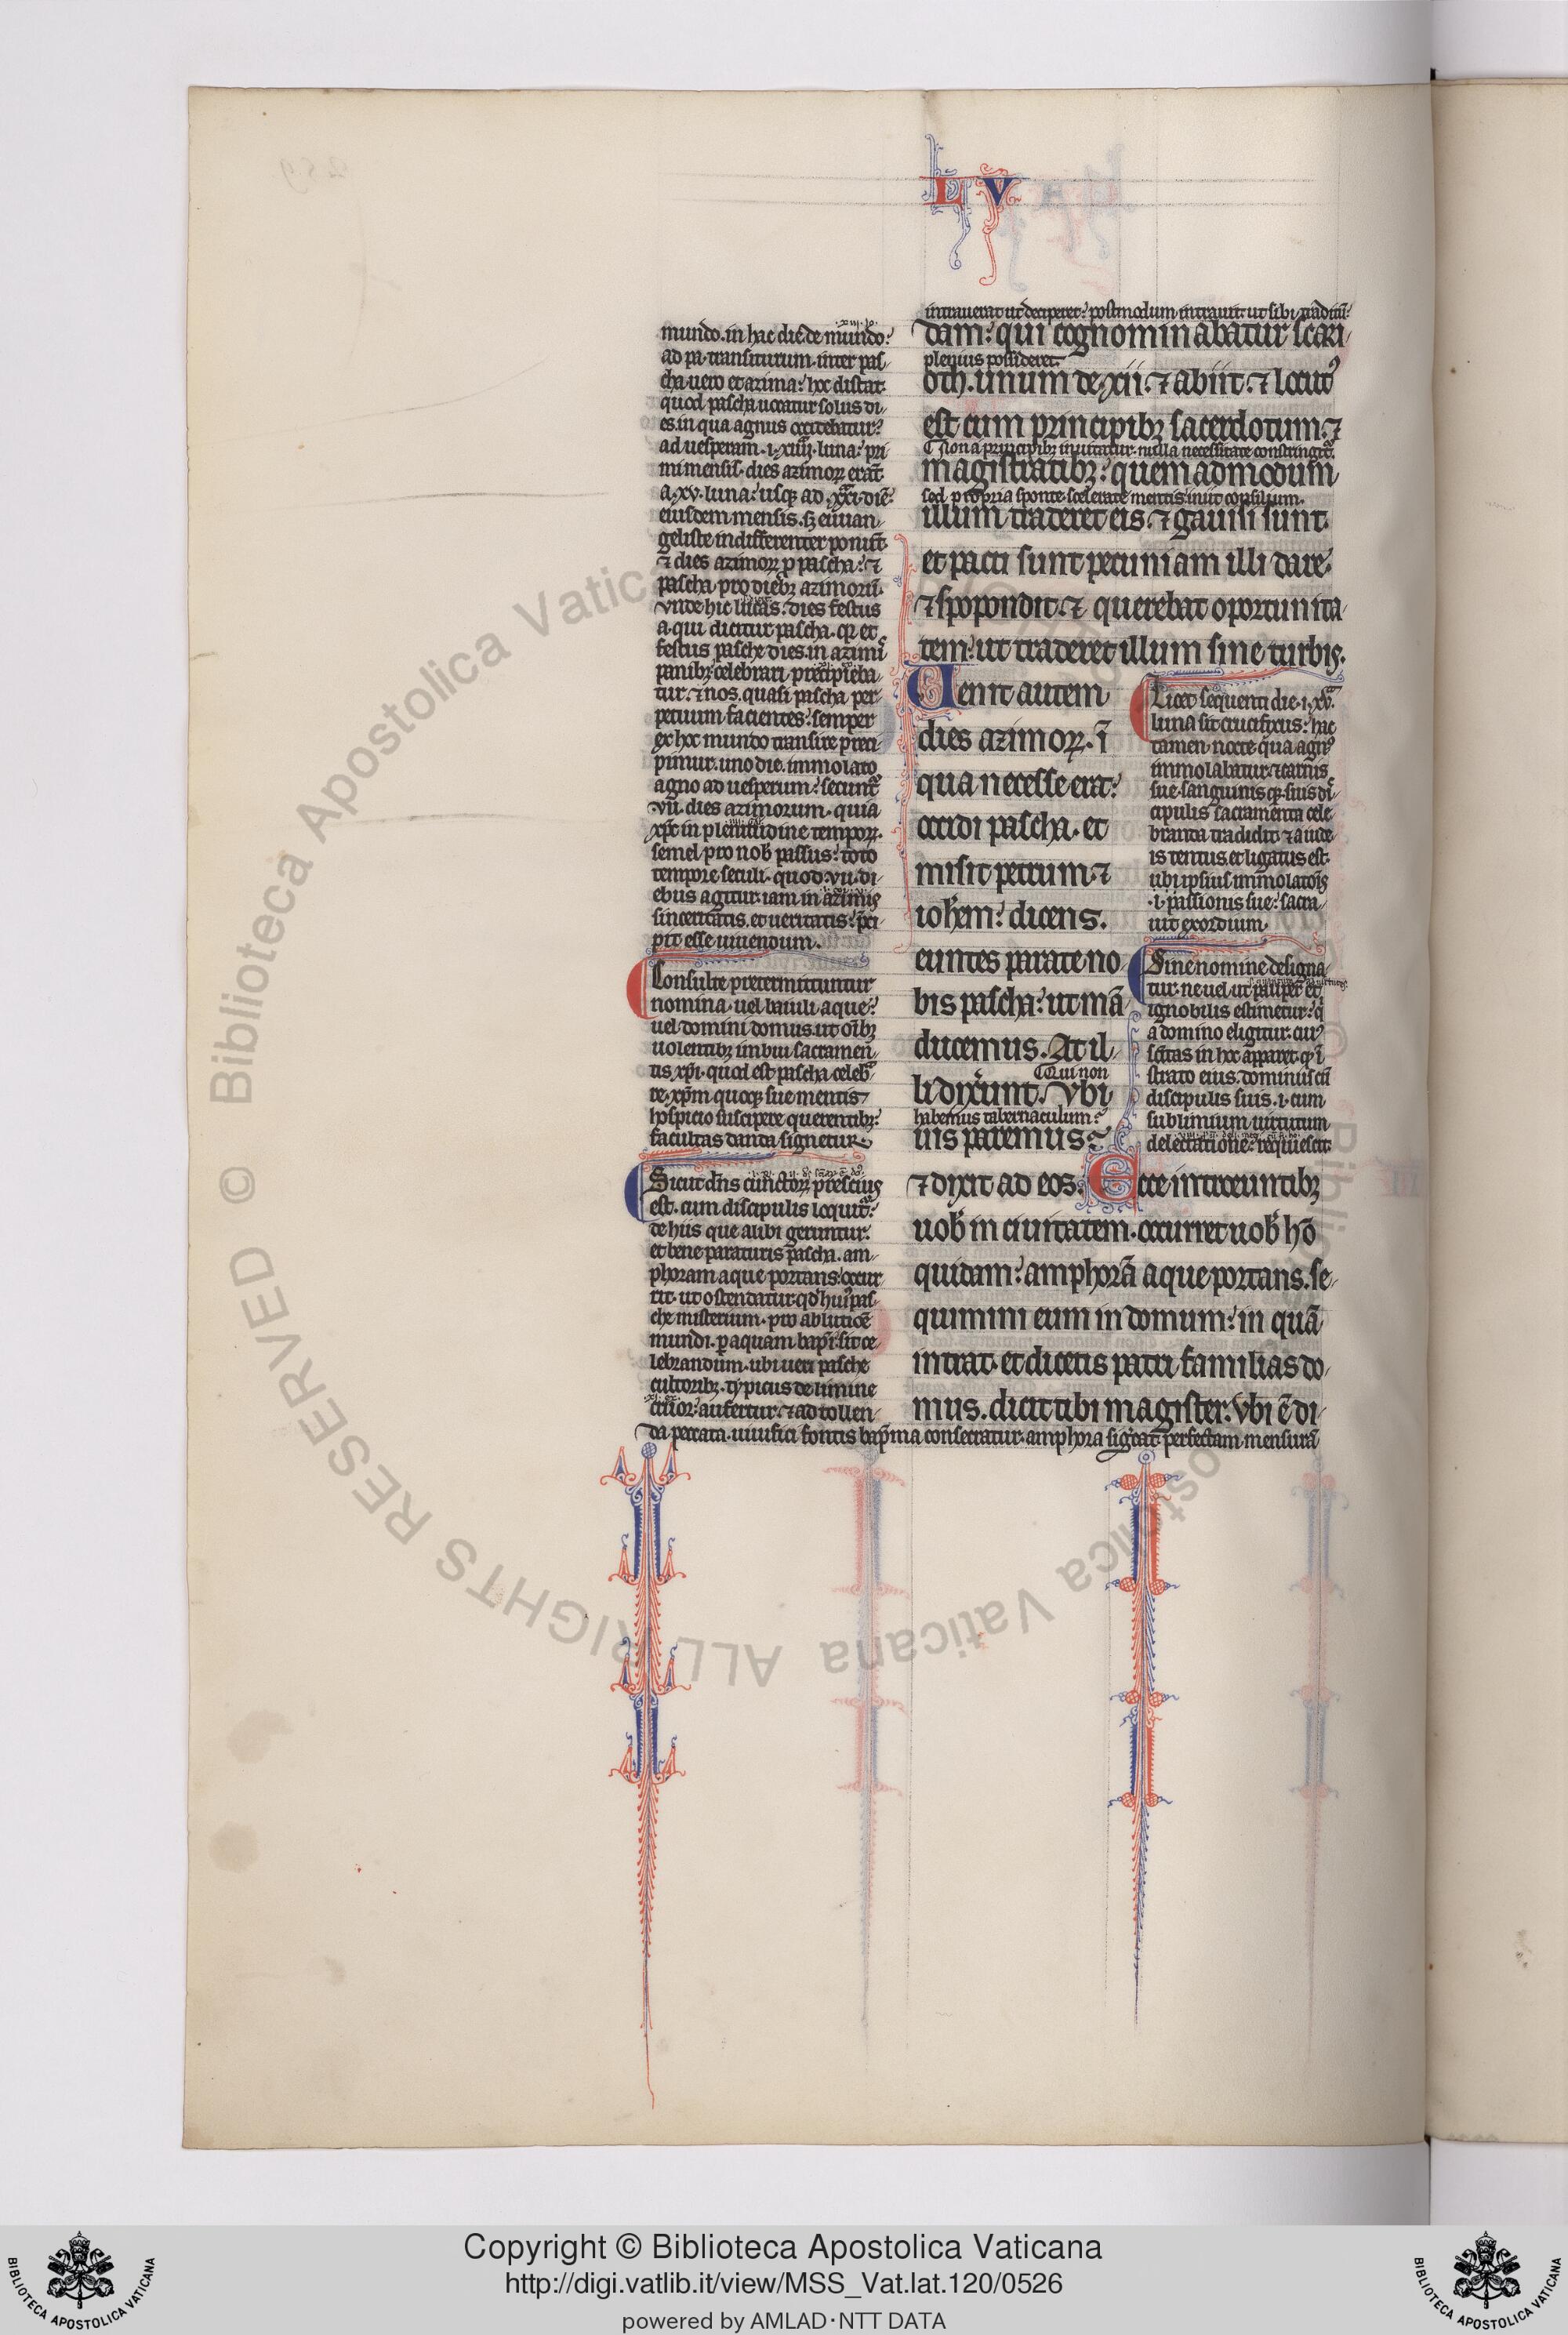 L V
mundo. in hac die de mundo:
ad pa. transiturum. inter pas-
cha uero et azima: hoc distat.
quod pascha uocatur solus di-
es. in qua agnus occidebatur:
ad uesperam .i. xiiii. luna: pri
mi mensis. dies azimoꝝ erāt.
a .xv. luna: usqꝫ ad .xxi. diē:
eiusdem mensis. sꝫ euuan-
geliste indifferenter ponūt.
⁊ dies azimoꝝ ꝓ pascha: ⁊
pascha pro diebꝫ azimorū.
vnde hic lucas: dies festus
a. qui dicitur pascha. qꝛ et
festus pasche dies. in azimis
panibꝫ celebrari precipieba-
tur. ⁊ nos. quasi pascha per-
petuum facientes: semper
ex hoc mundo transire preci-
pimur. uno die. immolato
agno ad uesperum: secuntur
vii. dies azimorum. quia
xp̄c in plenitudine tempoꝝ.
semel pro nob̄ passus: toto
tempore seculi. quod .vii. di-
ebus agitur. iam in azimis
sinceritatis. et ueritatis: p̄ci-
pit esse uiuendum.
Consulte pretermittuntur
nomina. uel baiuli aque:
uel domini domus. ut oībꝫ
uolentibꝫ imbui sacramen-
tis xp̄i. quod est pascha celebra-
re. xp̄m quoqꝫ sue mentis
hospicio suscipere querentibꝫ:
facultas danda signetur.
Sicut dn̄s cunctoꝝ prescius
est. cum discipulis loquitur:
de hiis que alibi geruntur.
et bene paraturis pascha. am-
phoram aque portans: occur-
rit. ut ostendatur. qd̄ huiꝰ pas-
che misterium. pro ablutiōe
mundi. ꝑ aquam bapt̄i. sit ce-
lebrandum. ubi ueri pasche
cultoribꝫ. typicus de limine
cruor: aufertur. ⁊ ad tollen-
da peccata. uiuifici fontis bap̄ma consecratur. amphora sigꝰcat. perfectam mensurā
intrauerat ut deciperet: postmodum intrauit. ut sibi traditū:
dam: qui cognominabatur scari-
plenius possideret.
oth. unum de xii. ⁊ abiit. ⁊ locutꝰ
est cum principibꝫ sacerdotum. ⁊
Non a principibꝫ inuitatur. nulla necessitate constringitur.
magistratibꝫ: quem admodum
sed propria sponte. scelerate mentis iniit consilium.
illum traderet eis. ⁊ gauisi sunt.
et pacti sunt pecuniam illi dare.
⁊ spopondit. ⁊ querebat oportunita-
tem: ut traderet illum sine turbis.
Uenit autem
dies azimoꝝ. ī
qua necesse erat:
occidi pascha. et
misit petrum. ⁊
ioh̄em: dicens.
euntes parate no
bis pascha: ut mā
ducemus. At il-
Qui non
li dixerunt. Vbi
habemus tabernaculum:
uis paremus:
⁊ dixit ad eos. Ecce introeuntibꝫ
uob̄ in ciuitatem. occurret uob̄ hō
quidam: amphorā aque portans. se-
quimini eum in domum: in quā
intrat. et dicetis patri familias do-
mus. dicit tibi magister. Vbi ē di-
Licet sequenti die .i. xv.
luna sit crucifixus: hac
tamen nocte qua agnꝰ
immolabatur. ⁊ carnis
sue. sanguinis qꝫ. suis dis-
cipulis sacramenta cele-
branda tradidit. ⁊ a iude-
is tentus. et ligatus est.
ubi ipsius immolatiōis
.i. passionis sue: sacra-
uit exordium.
Sine nomine designa
tur. ne uel ut pauper et
ignobilis estimetur: qui
a domino eligitur. cuiꝰ
sc̄itas in hoc apparet. qꝫ ī
strato eius. dominus cū
discipulis suis. i. cum
sublimium uirtutum
delectatione: requiescit.
Copyright © Biblioteca Apostolica Vaticana
http://digi.vatlib.it/view/MSS_Vat.lat.120/0526
powered by AMLAD·NTT DATA
BIBLIOTECA APOSTOLICA VATICANA
BIBLIOTECA APOSTOLICA VATICANA
© Biblioteca Apostolica Vaticana ALL RIGHTS RESERVED